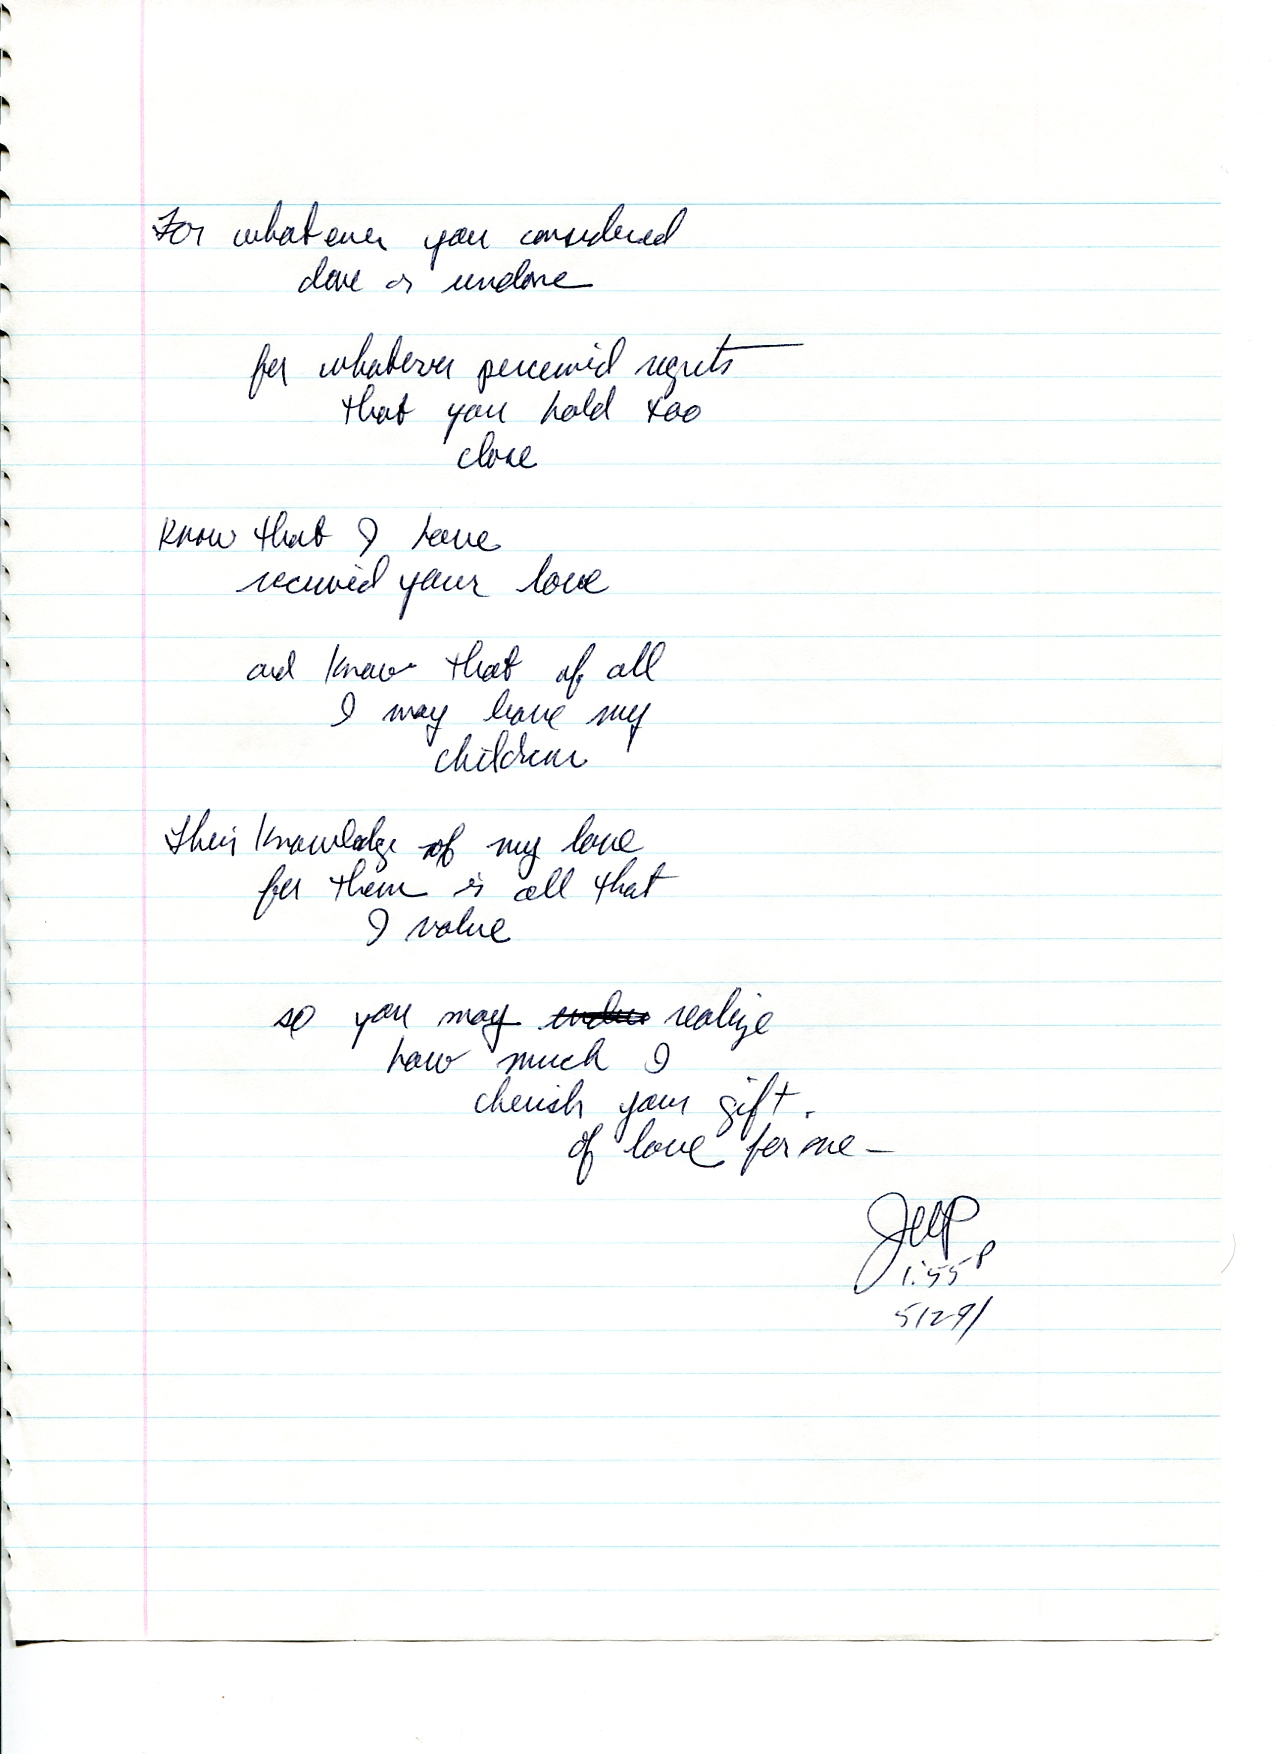 For whatever you considered
done or undone
for whatever perceived regrets
that you hold too
close
Know that I have
received your love
and know that of all
I may leave my
children
Their knowledge of my love
for them is all that
I value
so you may realize
how much I
cherish your gift.
of love for me —
1:55 P